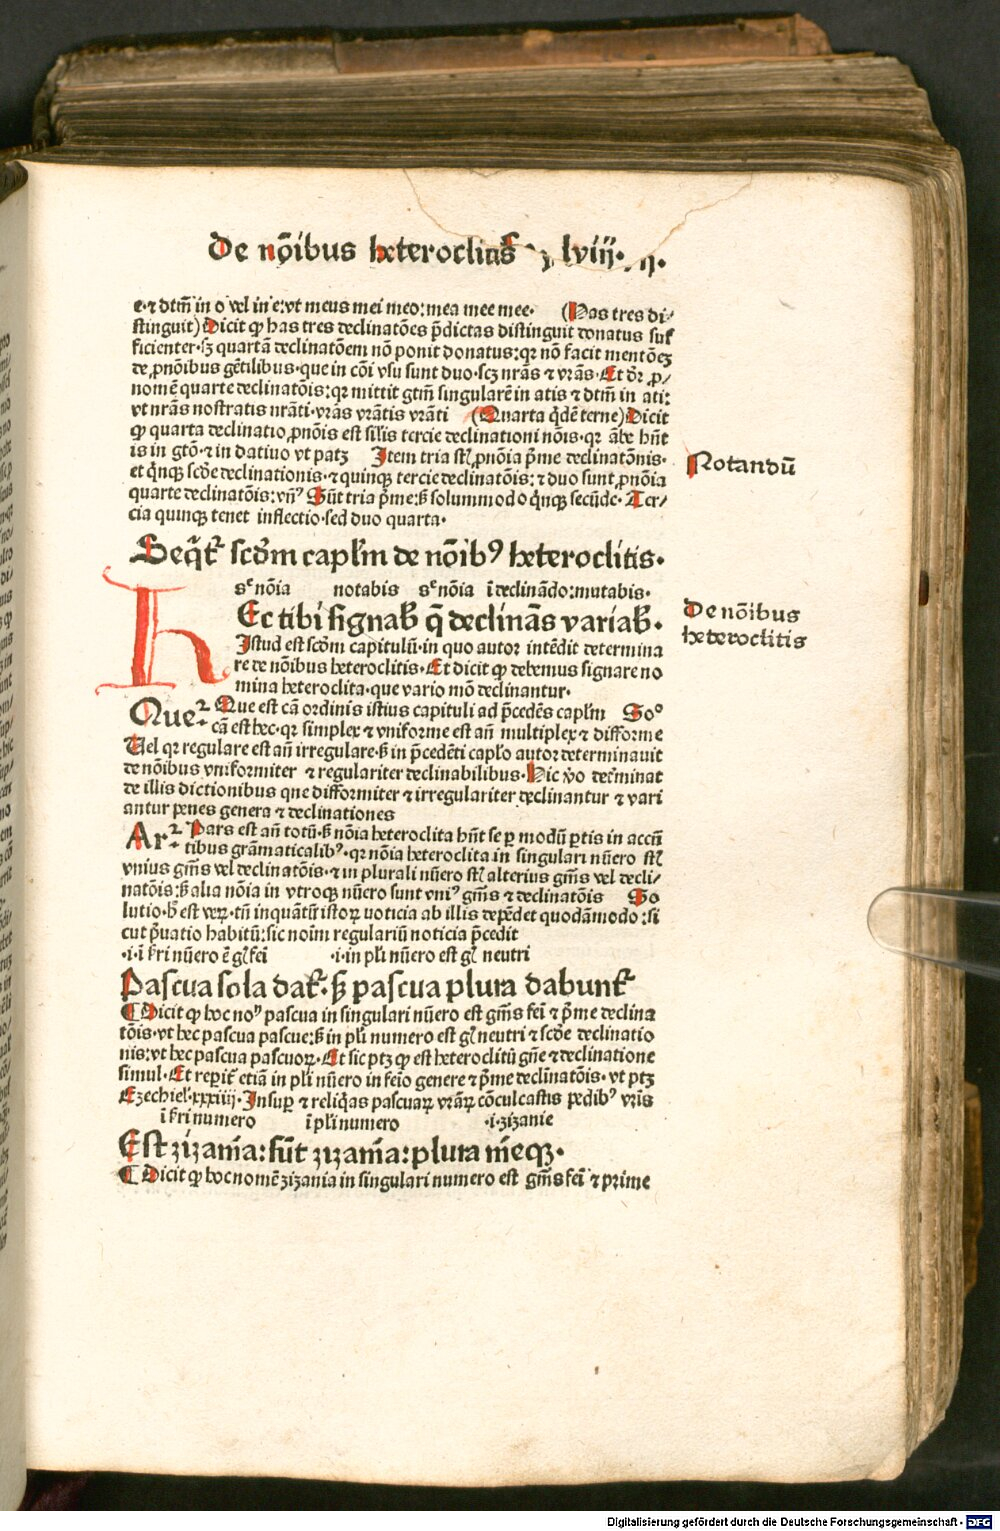 De nõibus heteroclitis lviij.
e·⁊ dtm̃ in o vel in e:vt meus mei meo:mea mee mee· (Has tres di/
stinguit) Dicit ꝙ has tres declinatões p̃dictas distinguit donatus suf
ficienter·sꝫ quartã declinatõem nõ ponit donatus:qꝛ nõ facit mentõeꝫ
de ꝓnõibus gẽtilibus·que in cõi vsu sunt duo·scꝫ nrãs ⁊ vrãs·Et dr̃ ꝓ/
nomẽ quarte declinatõis:qꝛ mittit gtm̃ singularẽ in atis ⁊ dtm̃ in ati:
vt nrãs nostratis nrãti·vrãs vrãtis vrãti (Quarta q̃dẽ terne) Dicit
ꝙ quarta declinatio ꝓnõis est sil̃is tercie declinationi nõis·qꝛ ambe hñt
is in gtõ·⁊ i in datiuo vt patꝫ Item tria st̃ ꝓnõia p̃me declinatõnis·
et q̃nqꝫ scd̃e declinationis·⁊ quinqꝫ tercie declinatõis: ⁊ duo sunt ꝓnõia
quarte declinatõis:vñ⁹ Sũt tria p̃me:sꝫ solummodo q̃nqꝫ secũde·Ter/
cia quinqꝫ tenet inflectio·sed duo quarta·
Notandũ
Seq̃tꝛ scd̃m capl̃m de nõibꝰ heteroclitis·
sᶜ nõia notabis sᶜ nõia ĩ declinãdo:mutabis·
HEc tibi signabꝫ q̃ declinãs variabꝫ·
De nõibus
heteroclitis
Istud est scd̃m capitulũ·in quo autor intẽdit determina
re de nõibus heteroclitis·Et dicit ꝙ debemus signare no
mina heteroclita·que vario mõ declinantur·
Querꝛ Que est cã ordinis istius capituli ad p̃cedẽs capl̃m So°
cã est hec·qꝛ simplex ⁊ vniforme est añ multiplex ⁊ difforme
Uel qꝛ regulare est añ irregulare·sꝫ in p̃cedẽti capl̃o autor determinauit
de nõibus vniformiter ⁊ regulariter declinabilibus·Hic v̾o det̃minat
de illis dictionibus que difformiter ⁊ irregulariter declinantur ⁊ vari
antur penes genera ⁊ declinationes
Arꝛ Pars est añ totũ·sꝫ nõia heteroclita hñt se ꝑ modũ ꝑtis in accñ
tibus grãmaticalibꝰ·qꝛ nõia heteroclita in singulari nũero st̃
vnius gñis vel declinatõis·⁊ in plurali nũero st̃ alterius gñis vel decli/
natõis:sꝫ alia nõia in vtroqꝫ nũero sunt vniꝰ gñis ⁊ declinatõis So
lutio·hꝫ est verꝫ·tñ inquãtũ istoꝝ noticia ab illis depẽdet quodãmodo:si
cut p̃uatio habitũ:sic noĩm regulariũ noticia p̃cedit
·i·ĩ sĩri nũero ẽ gĩ fei ·i·in pl̃i nũero est gĩ neutri
Pascua sola datꝛ·sꝫ pascua plura dabuntꝛ
¶ Dicit ꝙ hoc noᵐ pascua in singulari nũero est gñis fei ⁊ p̃me declina
tõis·vt hec pascua pascue:sꝫ in pl̃i numero est gĩ neutri ⁊ scd̃e declinatio
nis:vt hec pascua pascuoꝝ·Et sic ptꝫ ꝙ est heteroclitũ gñe ⁊ declinatione
simul·Et reperitꝛ etiã in pl̃i nũero in feĩo genere ⁊ p̃me declinatõis·vt ptꝫ
Ezechiel·xxxiiij·Insuꝑ ⁊ reliq̃as pascuaꝝ vrãꝝ cõculcastis pedibꝰ vr̃is
ĩ sĩri numero ĩ pl̃i numero ·i·zizanie
Est zizania:sũt zizania:plura m̃eqꝫ·
¶ Dicit ꝙ hoc nomẽ zizania in singulari numero est gñis fei ⁊ prime
Digitalisierung gefördert durch die Deutsche Forschungsgemeinschaft · DFG